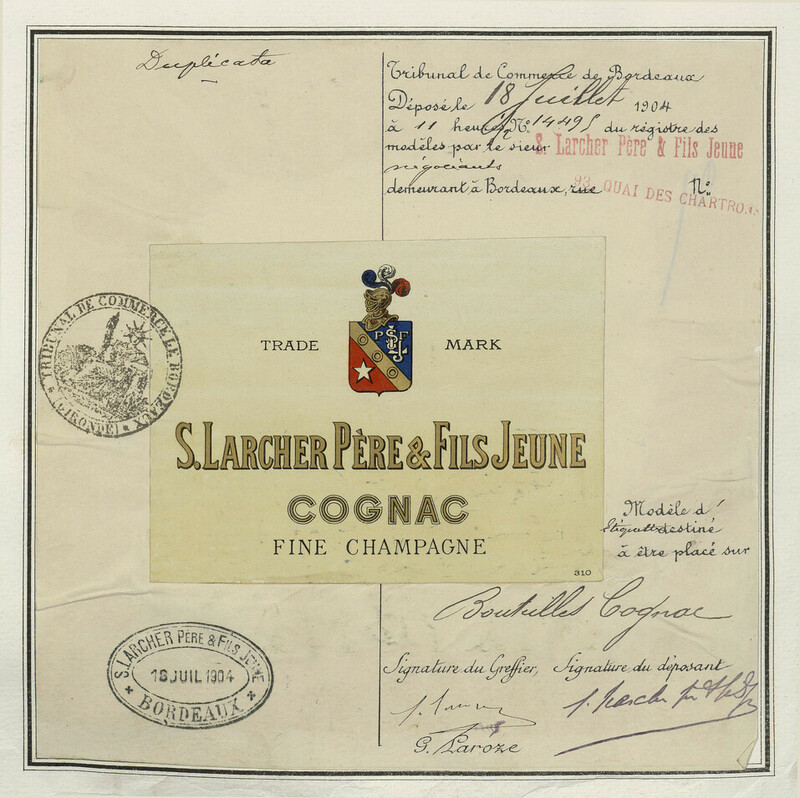 Duplicata
Tribunal de Commerce de Bordeaux
Déposé le 18 Juillet 1904
à 11 heures No. 14495 du régistre des
modèles par le sieur S. Larcher Père & Fils Jeune
négociants
demeurant à Bordeaux, rue No.
93, QUAI DES CHARTRONS
TRADE MARK
P S F L J
TRIBUNAL DE COMMERCE DE BORDEAUX
(GIRONDE)
S. LARCHER PÈRE & FILS JEUNE
COGNAC
FINE CHAMPAGNE
310
Modèle d'
étiquette destiné
à être placé sur
Bouteilles Cognac
S. LARCHER PÈRE & FILS JEUNE
18 JUIL 1904
BORDEAUX
Signature du Greffier, Signature du déposant
G. Laroze